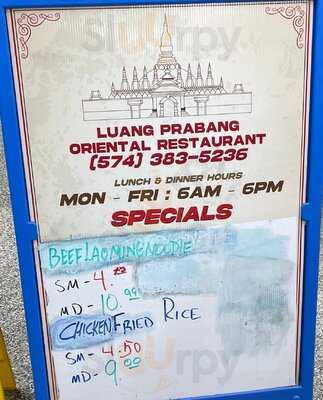 LUANG PRABANG
ORIENTAL RESTAURANT
(574) 383-5236
LUNCH & DINNER HOURS
MON - FRI : 6AM - 6PM
SPECIALS
BEEF LAO MING NOODLE
SM - 4.
MD - 10.99
CHICKEN FRIED RICE
SM - 4.50
MD - 9.00